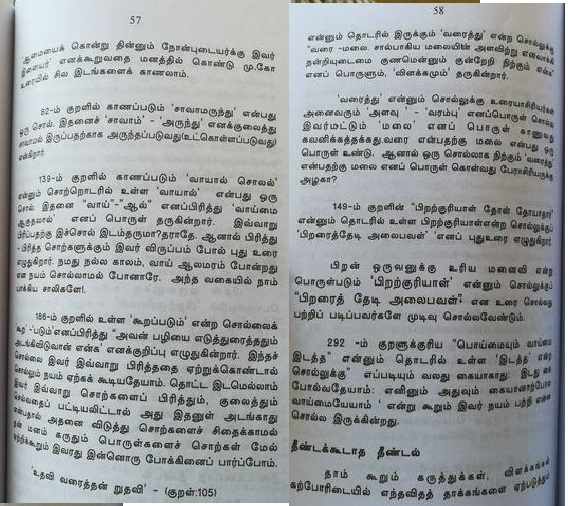 57
ஆமையைக் கொன்று தின்னும் நோன்புடையர்க்கு இவர்
இளையர்' எனக்கூறுவதை மனத்தில் கொண்டு மு.கோ
உரையில் சில இடங்களைக் காணலாம்.
82-ம் குறளில் காணப்படும் 'சாவாமருந்து' என்பது
ஒரு சொல். இதனைச் 'சாவாம்' - 'அருந்து' எனக்குலைத்து
சாவாமல் இருப்பதற்காக அருந்தப்படுவது(உட்கொள்ளப்படுவது)
என்கிறார்.
139-ம் குறளில் காணப்படும் 'வாயால் சொலல்'
என்னும் சொற்றொடரில் உள்ள 'வாயால்' என்பது ஒரு
சொல். இதனை "வாய்"-"ஆல்" எனப்பிரித்து 'வாய்மை
ஆகுதலால்' எனப் பொருள் தருகின்றார். இவ்வாறு
பிரிப்பதற்கு இச்சொல் இடம்தருமா?தராதே. ஆனால் பிரித்து
- பிரித்த சொற்களுக்கும் இவர் விருப்பம் போல் புது உரை
எழுதுகிறார். நமது நல்ல காலம், வாய் ஆலமரம் போன்றது
என நயம் சொல்லாமல் போனாரே. அந்த வகையில் நாம்
பாக்கிய சாலிகளே!.
186-ம் குறளில் உள்ள 'கூறப்படும்' என்ற சொல்லைக்
கூறு'-'படும்'எனப்பிரித்து "அவன் பழியை எடுத்துரைத்ததும்
அடங்கிவிடுவான் என்க எனக்குறிப்பு எழுதுகின்றார். இந்தச்
சொல்லை இவர் இவ்வாறு பிரித்ததை ஏற்றுக்கொண்டால்
சொல்லும் நயம் ஏற்கக் கூடியதேயாம். தொட்ட இடமெல்லாம்
இவர் இவ்வாறு சொற்களைப் பிரித்தும், குலைத்தும்
செல்வதைப் பட்டியலிட்டால் அது இதனுள் அடங்காது
என்பதால் அதனை விடுத்து சொற்களைச் சிதைக்காமல்
தன் மனம் கருதும் பொருள்களைச் சொற்கள் மேல்
ஏற்றிக்கூறும் இவரது இன்னொரு போக்கினைப் பார்ப்போம்.
'உதவி வரைத்தன் றுதவி' – (குறள்:105)
58
என்னும் தொடரில் இருக்கும் 'வரைத்து' என்ற சொல்லுக்கு
"வரை -மலை. சால்பாகிய மலையின் அளவிற்று எனலாக்கி
நன்றியுடைமை குணமென்னும் குன்றேறி நிற்கும் என்க"
எனப் பொருளும், 'விளக்கமும்' தருகின்றார்.
'வரைத்து' என்னும் சொல்லுக்கு உரையாசிரியர்கள்
அனைவரும் 'அளவு ' - 'வரம்பு' எனப்பொருள் சொல்ல
இவர்மட்டும் 'மலை' எனப் பொருள் காணுவது
கவனிக்கத்தக்கது.வரை என்பதற்கு மலை என்பது ஒரு
பொருள் உண்டு. ஆனால் ஒரு சொல்லாக நிற்கும் 'வரைத்து'
என்பதற்கு மலை எனப் பொருள் கொள்வது பேராசிரியருக்கு
அழகா?
149-ம் குறளினின் "பிறற்குரியாள் தோள் தோயாதார்"
என்னும் தொடரில் உள்ள பிறற்குரியாள்என்ற சொல்லுக்குப்
"பிறரைத்தேடி அலைபவள்" எனப் புதுஉரை எழுதுகிறார்.
பிறன் ஒருவனுக்கு உரிய மனைவி என்ற
பொருள்படும் 'பிறற்குரியாள்' என்னும் சொல்லுக்குப்
"பிறரைத் தேடி அலைபவள்" என உரை சொல்வது
பற்றிப் படிப்பவர்களே முடிவு சொல்லவேண்டும்.
292 -ம் குறளுக்குரிய "பொய்மையும் வாய்மை
இடத்த" என்னும் தொடரில் உள்ள 'இடத்த' என்ற
சொல்லுக்கு" எப்படியும் வலது கையாகாது: இடது கை
போல்வதேயாம்: எனினும் அதுவும் கையானாற்போல
வாய்மையேயாம் ' என்று கூறும் இவர் நயம் பற்றி என்ன
சொல்ல இருக்கிறது.
தீண்டக்கூடாத தீண்டல்
தாம் கூறும் கருத்துக்கள், விளக்கங்கள்
கற்போரிடையில் எந்தவிதத் தாக்கங்களை ஏற்படுத்தும்